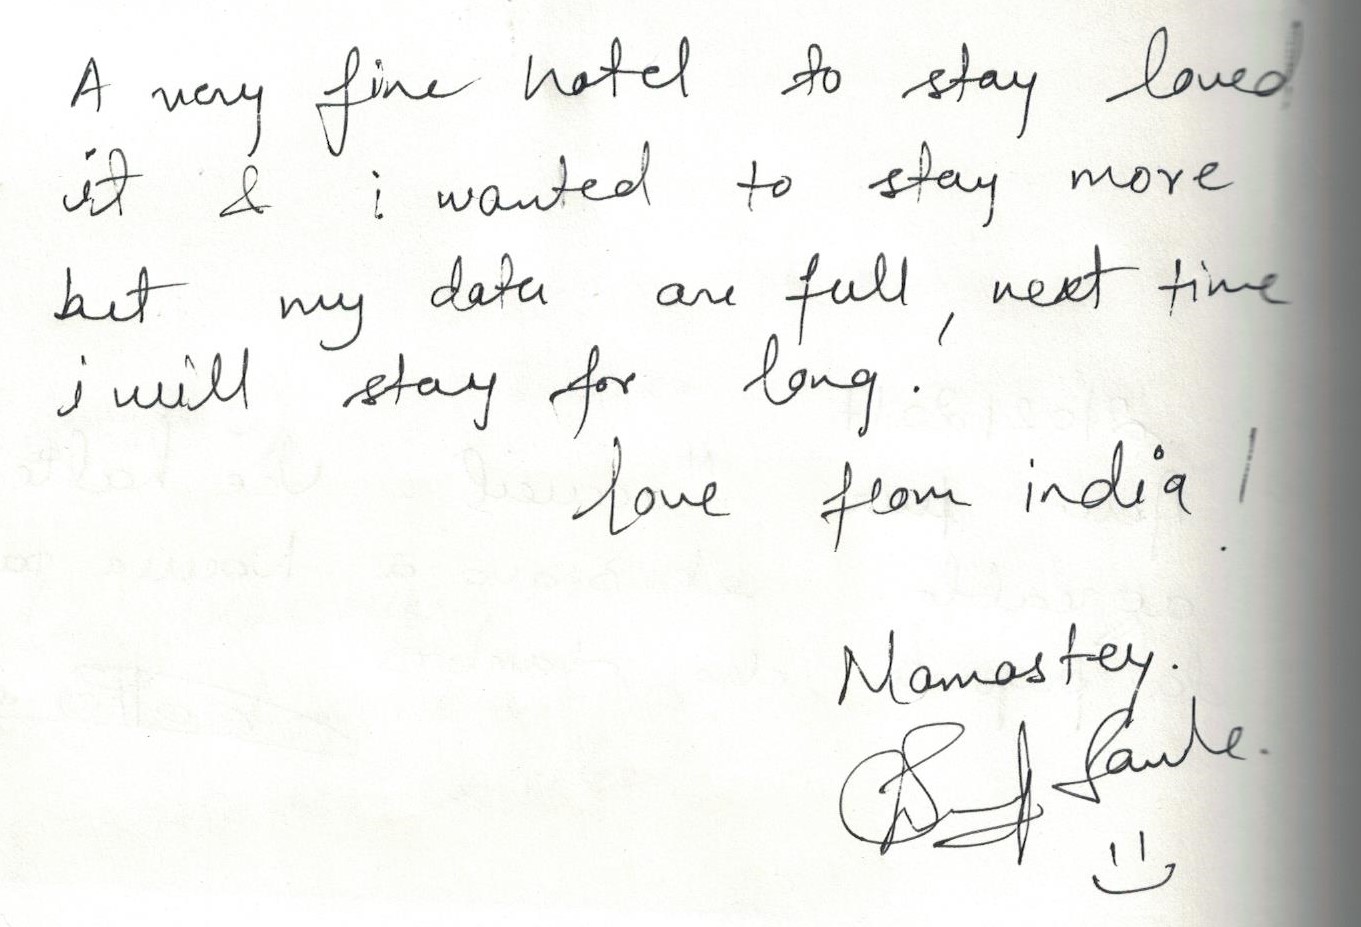 A very fine hotel to stay loved
it & i wanted to stay more
but my dates are full, next time
i will stay for long.
love from india!
Namastey.